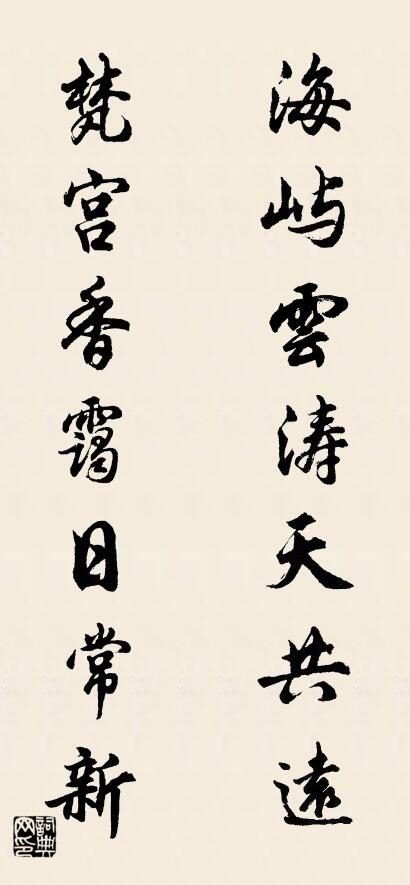 海屿雲涛天共遠
梵宫香靄日常新
詞典网印